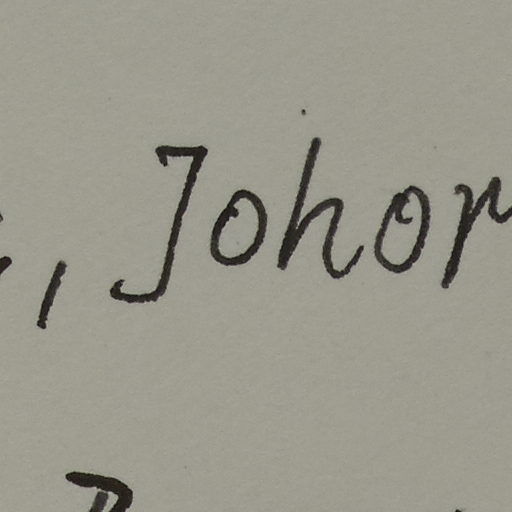 , Johor